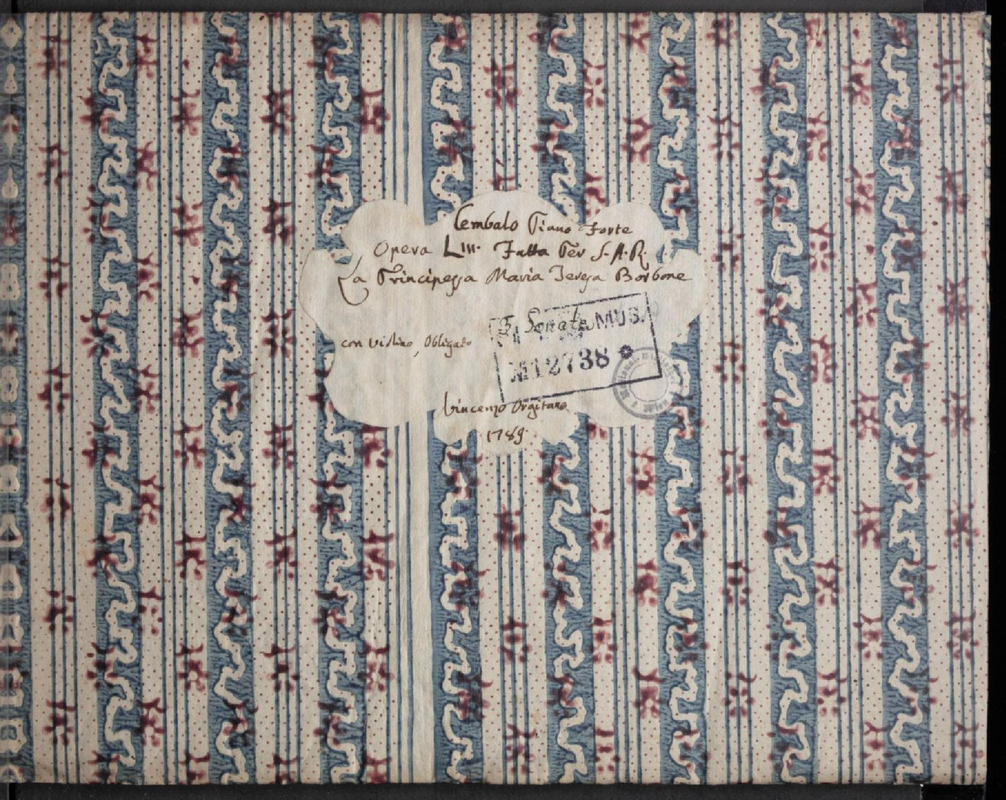 Cembalo Piano Forte
Opera LIII. Fatta Per S.A.R.
La Principessa Maria Teresa Borbone
3 Sonate
con violino, Obligato
MUS.
M12738 *
Vincenzo Orgitano
1789